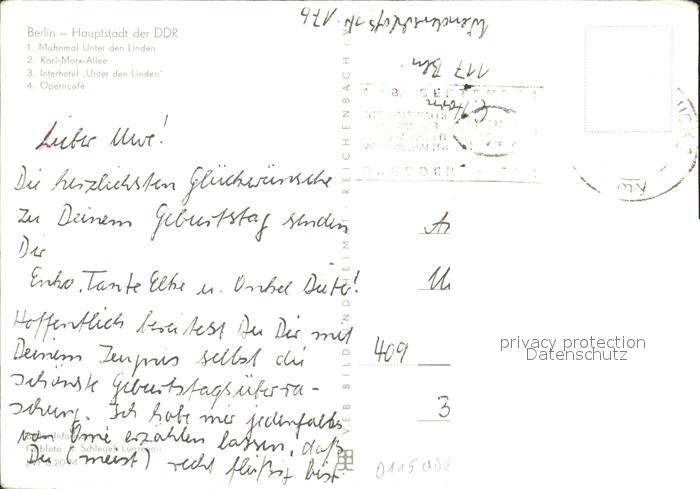 Berlin – Hauptstadt der DDR
1. Mahnmal Unter den Linden
2. Karl-Marx-Allee
3. Interhotel „Unter den Linden"
4. Operncafé
Lieber Uwe!
Die herzlichsten Glückwünsche
zu Deinem Geburtstag senden
Dir
Enko, Tante Elke u. Onkel Dieter!
Hoffentlich bereitest Du Dir mit
Deinem Zeugnis selbst die
schönste Geburtstagsüberra-
schung. Ich habe mir jedenfalls
von Omi erzählen lassen, daß
Du (meist) recht fleißig bist.
Farbfoto: Schlegel,
VEB BILD UND HEIMAT REICHENBACH I.V.
176
117 Bln.
SEPTEMBER
DRESDEN
409
3
privacy protection
Datenschutz